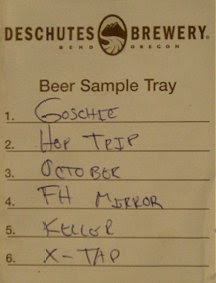 DESCHUTES BREWERY®
BEND OREGON
Beer Sample Tray
1. GOSCHIE
2. HOP TRIP
3. OCTOBER
4. FH MIRROR
5. KELLER
6. X-TAP